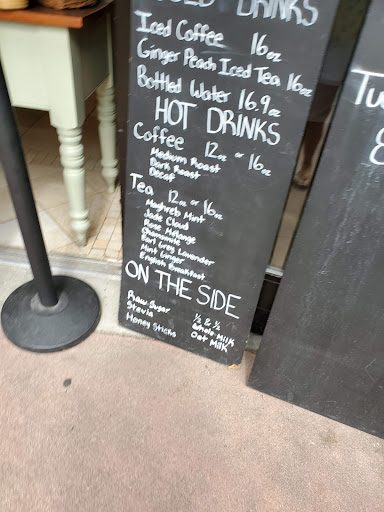 DRINKS
Iced Coffee 16oz
Ginger Peach Iced Tea 16oz
Bottled Water 16.9oz
HOT DRINKS
Coffee 12oz or 16oz
Medium Roast
Dark Roast
Decaf
Tea 12oz or 16oz
Maghreb Mint
Jade Cloud
Rose Melange
Chamomile
Earl Grey Lavender
Mint Ginger
English Breakfast
ON THE SIDE
Raw Sugar ½ & ½
Stevia Whole Milk
Honey Sticks Oat Milk
Tu